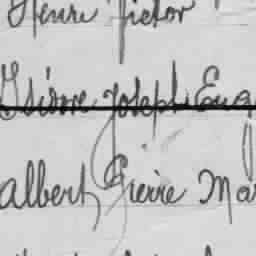 Henri Victor
Isidore Joseph Eug
Albert, Pierre Mar